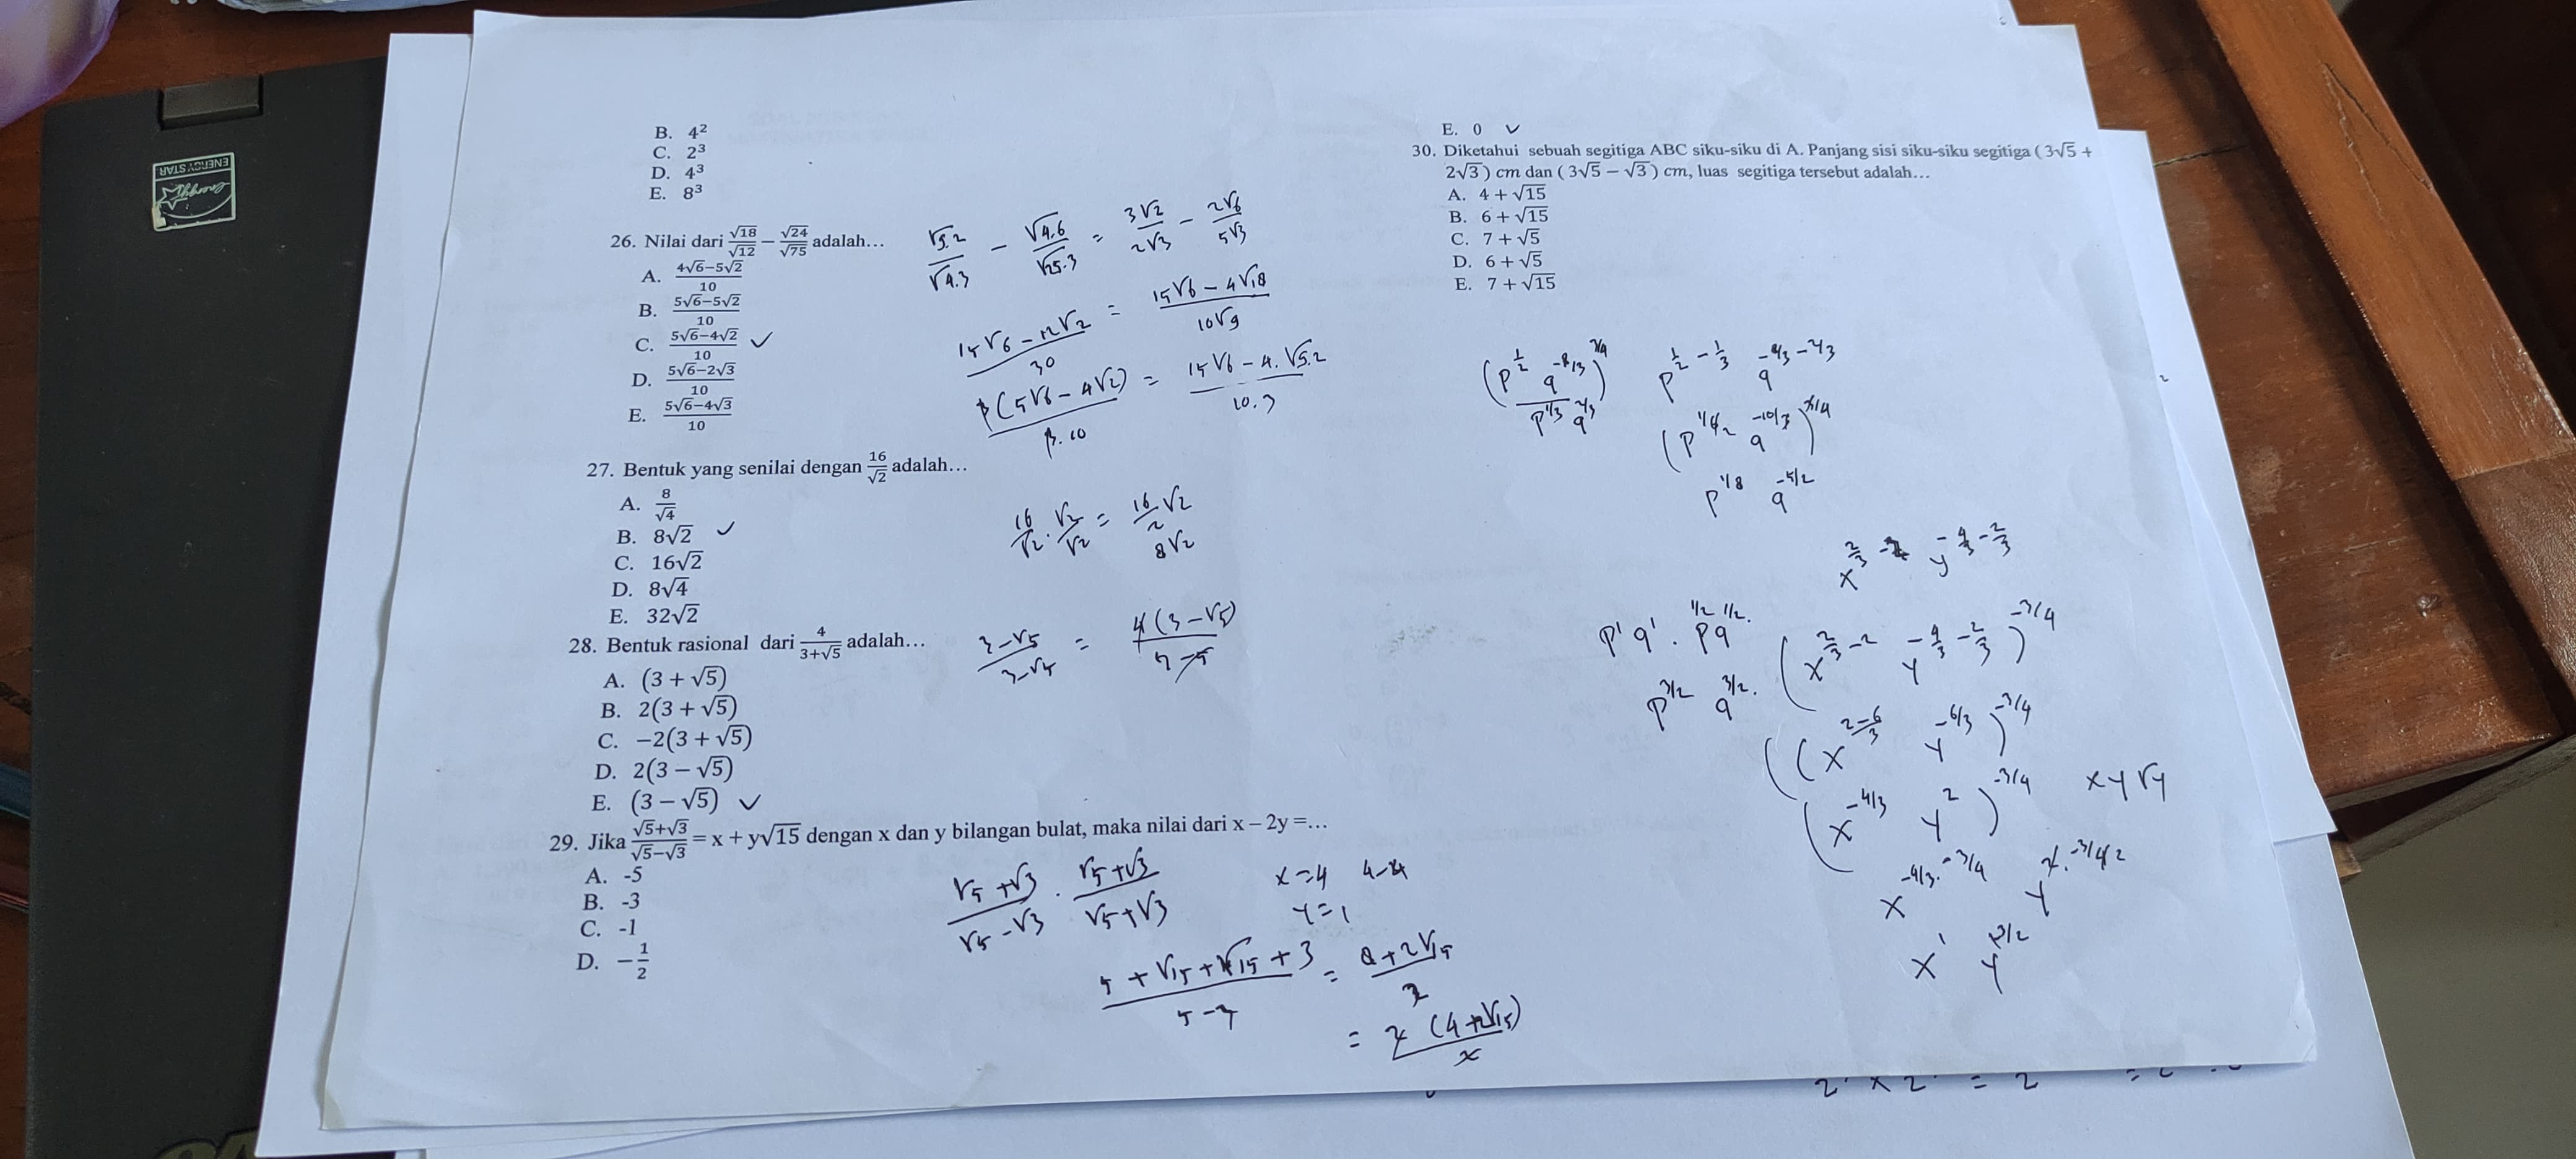 B. 4²
C. 2³
D. 4³
E. 8³
26. Nilai dari √18/√12 − √24/√75 adalah…
A. (4√6−5√2)/10
B. (5√6−5√2)/10
C. (5√6−4√2)/10 ✓
D. (5√6−2√3)/10
E. (5√6−4√3)/10
√9.2/√4.3 − √4.6/√25.3 = 3√2/2√3 − 2√6/5√3
(15√6 − 12√2)/30 = (15√6 − 4√18)/10√9
3(5√6 − 4√2)/3.10 = (15√6 − 4.√9.2)/10.3
27. Bentuk yang senilai dengan 16/√2 adalah…
A. 8/√4
B. 8√2 ✓
C. 16√2
D. 8√4
E. 32√2
16/√2 . √2/√2 = 16√2/2
8√2
28. Bentuk rasional dari 4/(3+√5) adalah…
A. (3 + √5)
B. 2(3 + √5)
C. −2(3 + √5)
D. 2(3 − √5)
E. (3 − √5) ✓
(3−√5)/(3−√5) = 4(3−√5)/(9−5)
29. Jika (√5+√3)/(√5−√3) = x + y√15 dengan x dan y bilangan bulat, maka nilai dari x – 2y =…
A. -5
B. -3
C. -1
D. −1/2
(√5+√3)/(√5−√3) . (√5+√3)/(√5+√3)
x = 4
y = 1
(5 + √15 + √15 + 3)/(5−3) = (8 + 2√15)/2
= 2(4+√15)/2
E. 0 ✓
30. Diketahui sebuah segitiga ABC siku-siku di A. Panjang sisi siku-siku segitiga ( 3√5 +
2√3 ) cm dan ( 3√5 − √3 ) cm, luas segitiga tersebut adalah…
A. 4 + √15
B. 6 + √15
C. 7 + √5
D. 6 + √5
E. 7 + √15
p^(1/2 − 1/3)
p^(1/8) q^(−5/2)
p¹ q¹ . p^(1/2) q^(1/2).
p^(3/2) q^(3/2).
(x^(2/3 − 2) y^(−4/3 − 2/3))^(−3/4)
((x^((2−6)/3) y^(−6/3))^(−3/4)
(x^(−4/3) y²)^(−3/4)
x y √y
x^(−4/3 . −3/4)
x¹ y^(3/2)
ENERGY STAR